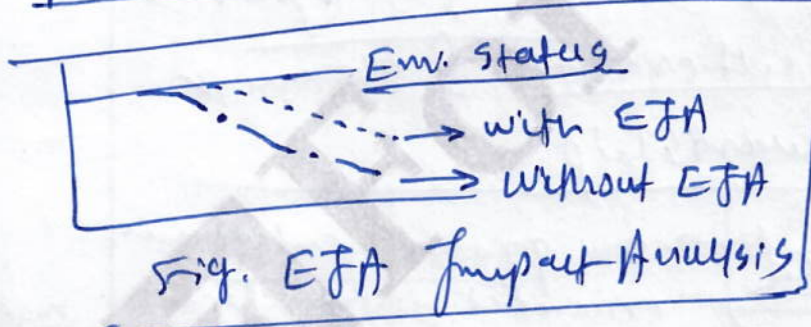 Env. Status
with EIA
Without EIA
Fig. EIA Impact Analysis